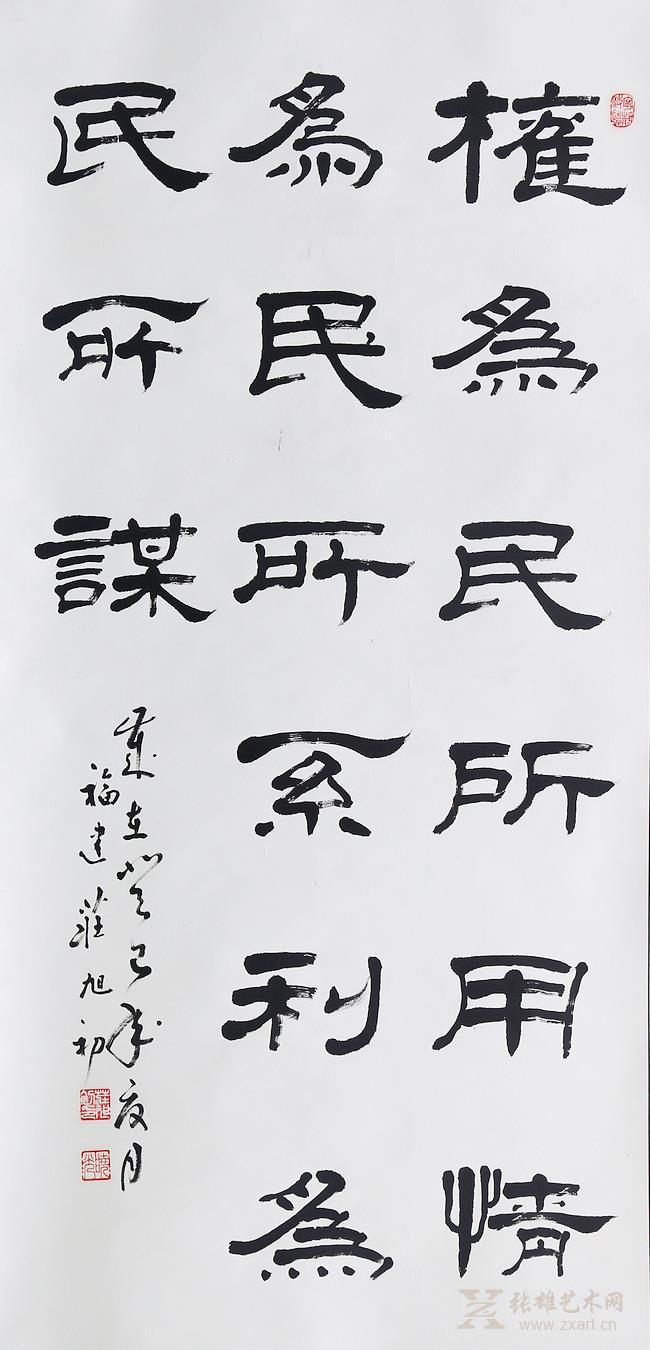 權為民所用情
為民所系利為
民所謀
歲在癸巳年夏月
福建莊旭初
张雄艺术网
www.zxart.cn